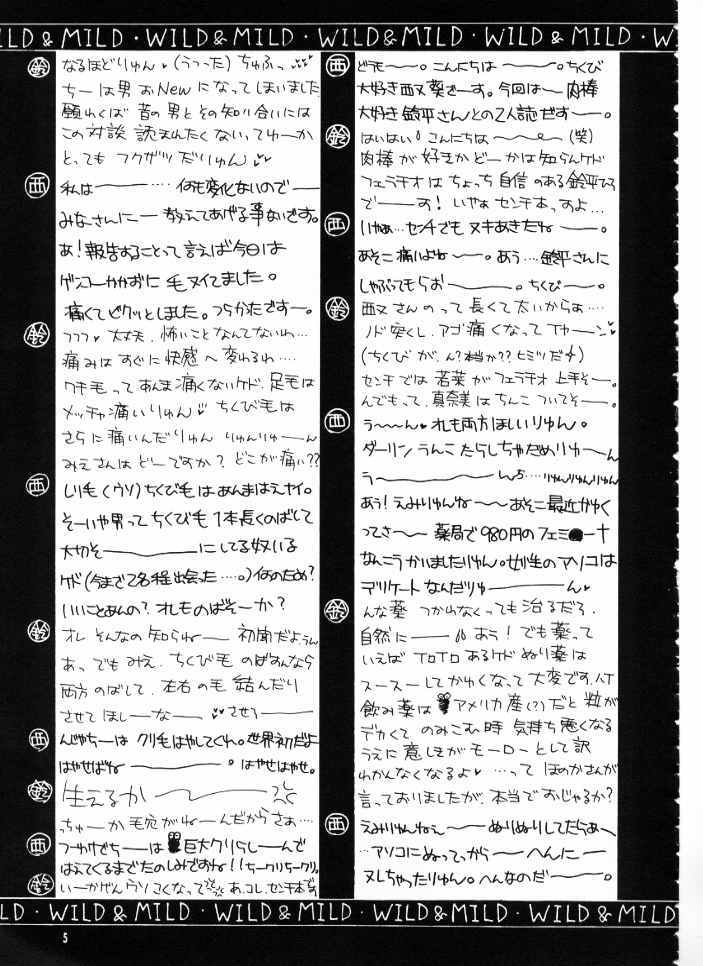 WILD & MILD・WILD & MILD・WILD & MILD・WILD & MILD・W
西 どうも〜〜。こんにちは〜〜。ちくび
大好き西又葵でーす。今回は〜肉棒
大好き鈴平さんとの2人誌だすー。
鈴 はいはい！こんにちは〜〜〜(笑)
肉棒が好きかどーかは知らんケド
フェラチオはちょっち自信のある鈴平ひろ
でーーす！いやぁセンチ本っすよ…
西 いやぁ…センチでもヌキあきたね〜〜。
あそこ痛いよね〜〜。あう…鈴平さんに
しゃぶってもらお〜〜。ちくび〜。
鈴 西又さんのって長くて太いからぁ…
ノド突くし、アゴ痛くなって
(ちくびが、ん？本当か??ヒミツだ)
西 う〜〜ん♥れも両方ほしいりゅん。
ダーリンうんこたらしちゃだめりゅーん
うー〜〜ん……りゅんりゅんりゅん
あう！えみりゅんね〜〜あそこ最近かゆく
ってさ〜〜薬局で980円のフェミ●ート
なんこうかいましたりゅん。女性のアソコは
デリケートなんだりゅーーん♥
鈴 んな薬つかわなくっても治るだろ、
自然にーー♪あう！でも薬って
いえばトロトロあるケドぬり薬は
スースーしてかゆくなって大変です
飲み薬はアメリカ産(?)だと粒が
デカくてのみこむ時気持ち悪くなる
うえに意しきがモーローとして訳
わかんなくなるよ♥…ってほのかさんが
言っておりましたが、本当でおじゃるか？
西 えみりゅんねぇ〜〜ぬりぬりしてたらぁ〜
…アソコにぬってっがら〜へんにー
ヌレちゃったりゅん。へんなのだ〜〜。
鈴 なるほどりゅん♥(うつった)ちゅふっ
ちーは男おNewになってしまいました
願わくば昔の男とその知り合いには
この対談読まれたくないってゆーか
とってもフクザツだりゅん♥
西 私はーー…何も変化ないのでー
みなさんにー教えてあげる事ないです。
あ！報告することって言えば今日は
ゲンコーかかずに毛ヌイてました。
痛くてビクッとしました。つらかたですー。
鈴 フフフ♥大丈夫、怖いことなんてないわ…
痛みはすぐに快感へ変わるわ…
ワキ毛ってあんま痛くないケド、足毛は
メッチャ痛いりゅん♥ちくび毛は
さらに痛いんだりゅんりゅんりゅーーん
みえさんはどーですか？どこが痛い??
西 しり毛(ウソ)ちくび毛はあんまはえナイ。
そーいや男ってちくび毛1本長くのばして
大切そーーーにしてる奴いる
ケド(今まで2名程出会った…。)何のため？
いいことあんの？オレものばそーか？
鈴 オレそんなの知らねー初聞だよぅ
あっでもみえ、ちくび毛のばすんなら
両方のばして、左右の毛結んだり
させてほしーなー、♥させろー
西 んじゃちーはクリ毛はやしてくれ。世界初だよ
はやせばね〜〜。はやせはやせ。
鈴 生えるか〜〜〜
っちゅーか毛穴がねーんだからさぁ…
西 つーわけでちーは巨大クリらしーんで
はえてくるまでたのしみですね！！ちークリちークリ。
鈴 いーかげんウソこくなって あ、コレ、センチ本
LD・WILD & MILD・WILD & MILD・WILD & MILD・WILD & MILD
5